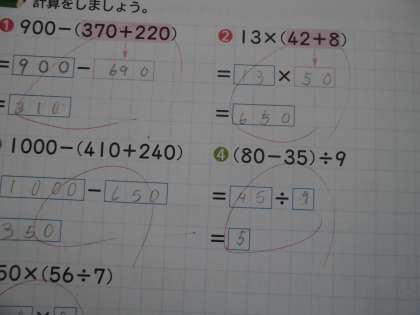 計算をしましょう。
❶ 900−(370+220)
=900−
=310
❷ 13×(42+8)
=13×50
=650
1000−(410+240)
1000−650
350
❹ (80−35)÷9
=45÷9
=5
50×(56÷7)